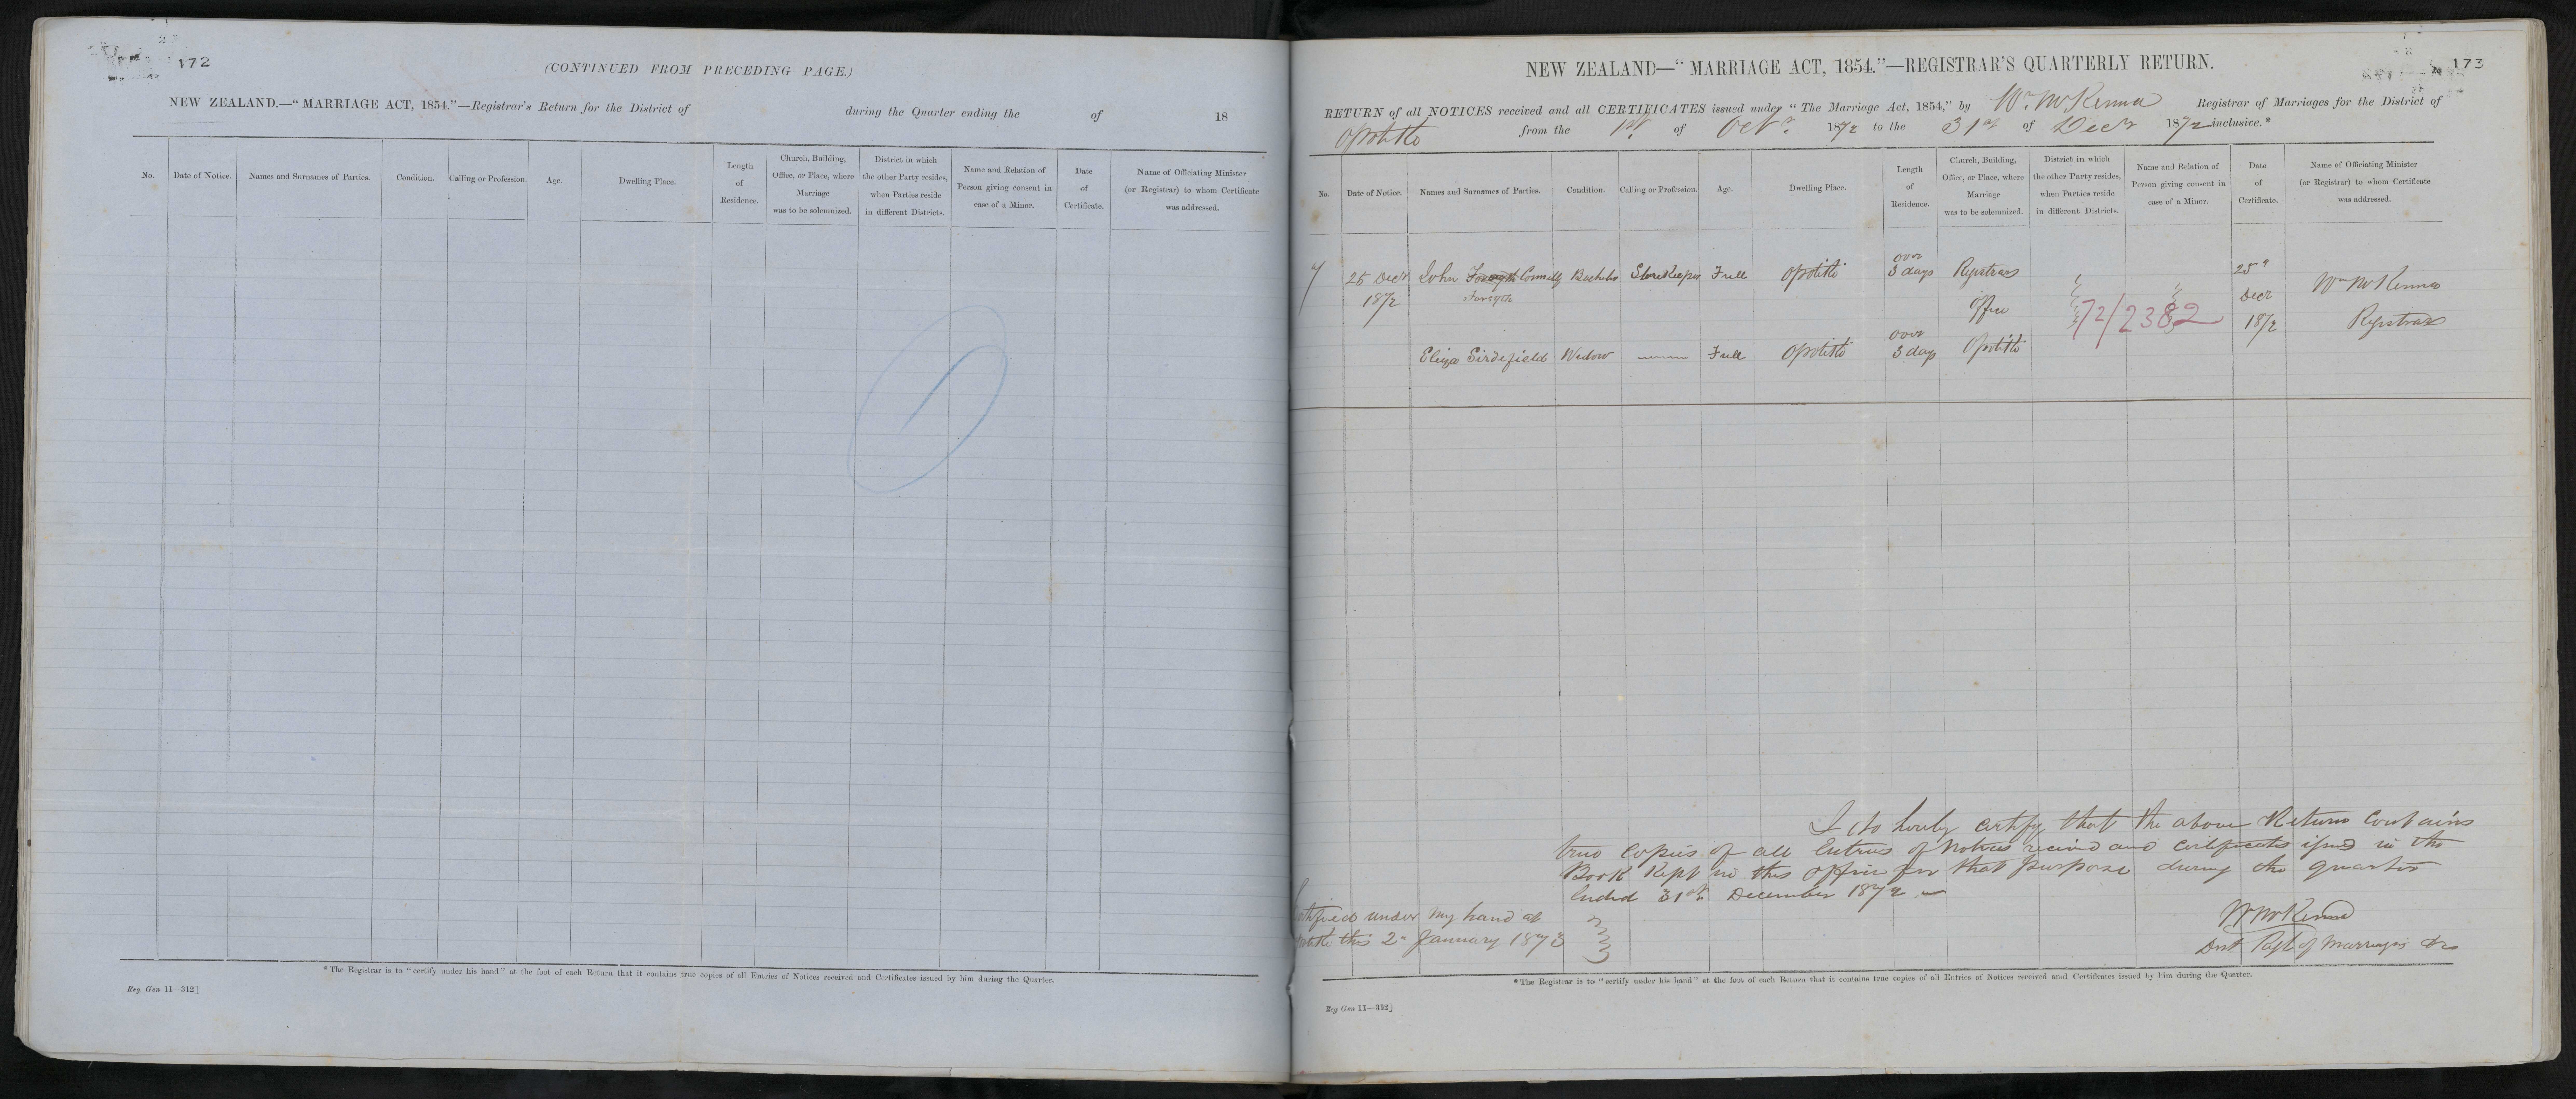 172
(CONTINUED FROM PRECEDING PAGE.)
NEW ZEALAND.—"MARRIAGE ACT, 1854."—Registrar's Return for the District of during the Quarter ending the of 18
No.
Date of Notice.
Names and Surnames of Parties.
Condition.
Calling or Profession.
Age.
Dwelling Place.
Length
of
Residence.
Church, Building,
Office, or Place, where
Marriage
was to be solemnized.
District in which
the other Party resides,
when Parties reside
in different Districts.
Name and Relation of
Person giving consent in
case of a Minor.
Date
of
Certificate.
Name of Officiating Minister
(or Registrar) to whom Certificate
was addressed.
* The Registrar is to "certify under his hand" at the foot of each Return that it contains true copies of all Entries of Notices received and Certificates issued by him during the Quarter.
Reg. Gen 11—312]
173
NEW ZEALAND—"MARRIAGE ACT, 1854."—REGISTRAR'S QUARTERLY RETURN.
RETURN of all NOTICES received and all CERTIFICATES issued under "The Marriage Act, 1854," by Wm. McKenna Registrar of Marriages for the District of
Opotiki from the 1st of Octr. 1872 to the 31st of Decr 1872 inclusive.*
No.
Date of Notice.
Names and Surnames of Parties.
Condition.
Calling or Profession.
Age.
Dwelling Place.
Length
of
Residence.
Church, Building,
Office, or Place, where
Marriage
was to be solemnized.
District in which
the other Party resides,
when Parties reside
in different Districts.
Name and Relation of
Person giving consent in
case of a Minor.
Date
of
Certificate.
Name of Officiating Minister
(or Registrar) to whom Certificate
was addressed.
25 Decr
1872
John Forsyth Connelly
Forsyth
Bachelor
StoreKeeper
Full
Opotiki
over
3 days
Registrars
Office
Opotiki
72/2382
25th
Decr
1872
Wm McKenna
Registrar
Eliza Sirdefield
Widow
Full
Opotiki
over
3 days
I do hereby certify that the above Return Contains
true Copies of all Entries of Notices received and Certificates issued in the
Book Kept in this Office for that purpose during the quarter
Ended 31st December 1872
Certified under my hand at
Opotiki this 2nd January 1873
Wm McKenna
Dist Regt of Marriages &c
* The Registrar is to "certify under his hand" at the foot of each Return that it contains true copies of all Entries of Notices received and Certificates issued by him during the Quarter.
Reg Gen 11—312]